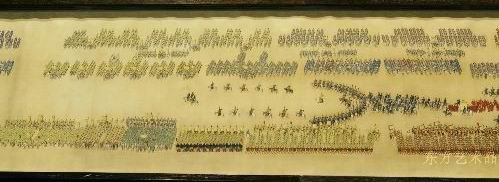 东方艺术品